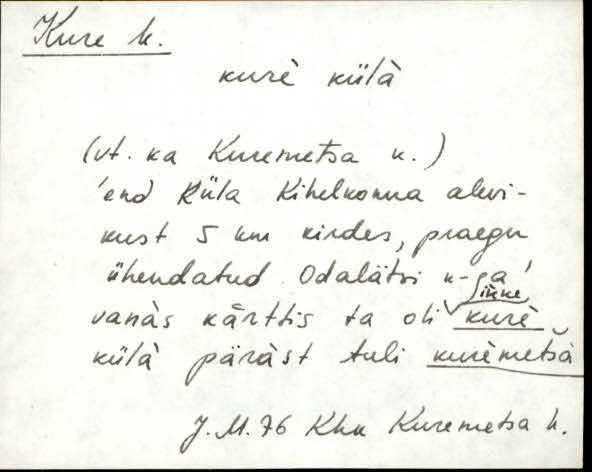 Kure k.
kurè külà
(vt. ka Kuremetsa k.)
'end küla Kihelkonna alevi-
kust 5 km kirdes, praegu
ühendatud Odalätsi k-ga'
vanàs kārttis ta oli kurè
külà päràst tuli kurèmetsà
J.M. 76 Khk Kuremetsa k.